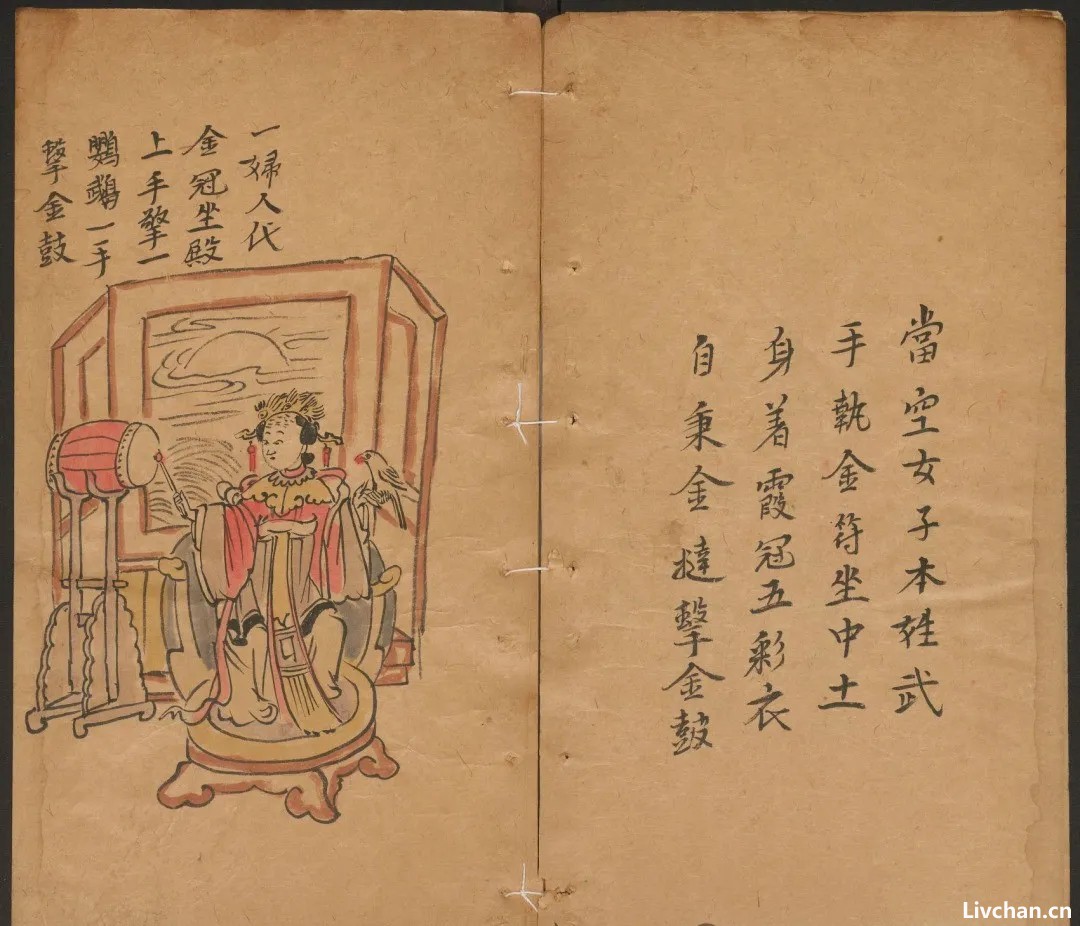 當空女子本姓武
手執金符坐中土
身着霞冠五彩衣
自秉金撻擊金鼓
一婦人代
金冠坐殿
上手擎一
鸚鵡一手
擊金鼓
Livchan.cn